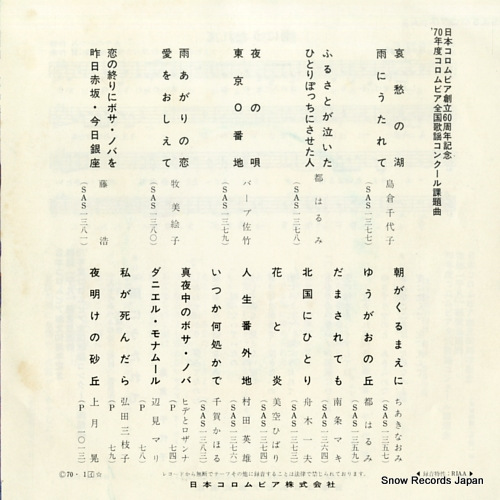 日本コロムビア創立60周年記念
'70年度コロムビア全国歌謡コンクール課題曲
哀愁の湖
雨にうたれて
島倉千代子
(SAS一三七七)
ふるさとが泣いた
ひとりぼっちにさせた人
都はるみ
(SAS一三七八)
夜の唄
東京〇番地
バーブ佐竹
(SAS一三七九)
雨あがりの恋
愛をおしえて
牧美絵子
(SAS一三八〇)
恋の終りにボサ・ノバを
昨日赤坂・今日銀座
藤浩
(SAS一三八一)
朝がくるまえに
ちあきなおみ
(SAS一三五七)
ゆうがおの丘
都はるみ
(SAS一三五九)
だまされても
南条マキ
(SAS一三六四)
北国にひとり
舟木一夫
(SAS一三七三)
花と炎
美空ひばり
(SAS一三七五)
人生番外地
村田英雄
(SAS一三七六)
いつか何処かで
千賀かほる
(SAS一三八三)
真夜中のボサ・ノバ
ヒデとロザンナ
(P 七四)
ダニエル・モナムール
辺見マリ
(P 七八)
私が死んだら
弘田三枝子
(P 七九)
夜明けの砂丘
上月晃
(P 一〇一三)
レコードから無断でテープその他に録音することは法律で禁じられております。
録音特性:RIAA
日本コロムビア株式会社
Snow Records Japan